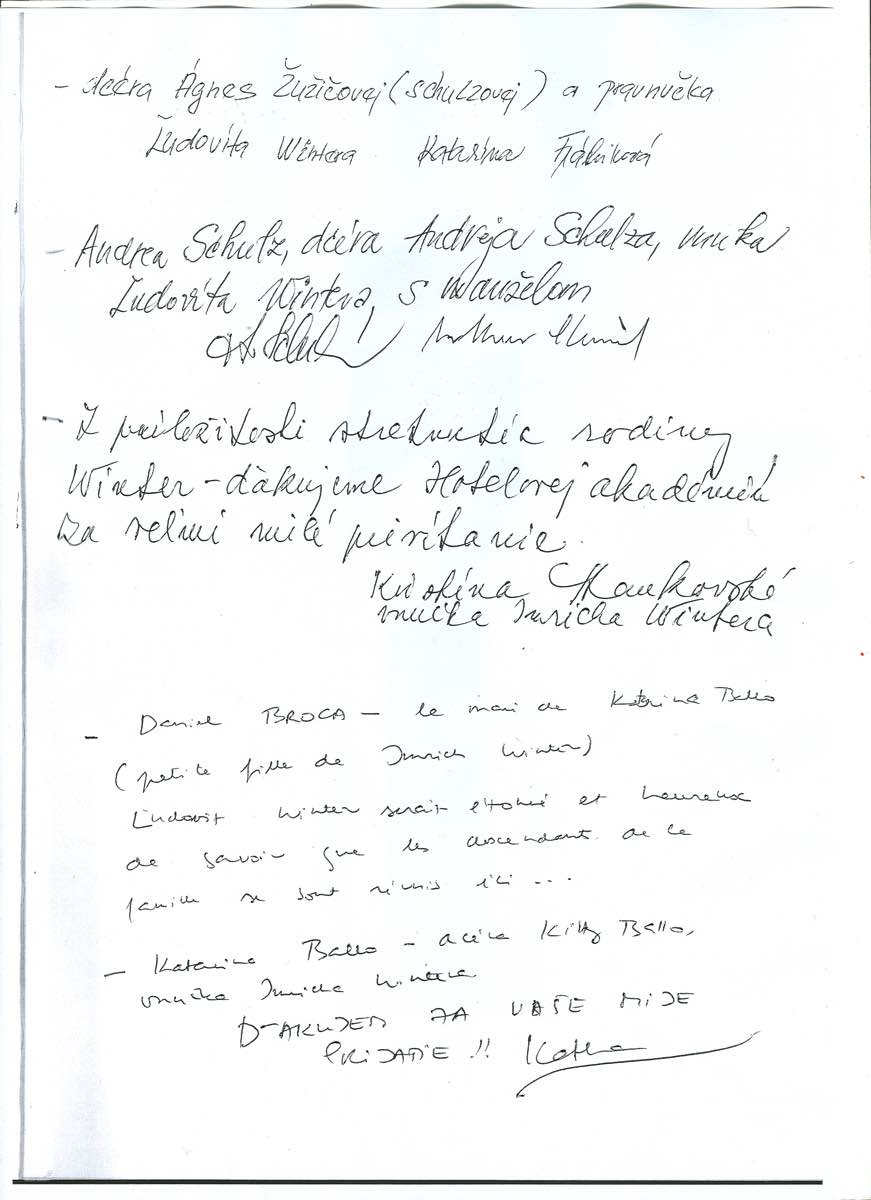 - dcéra Ágnes Žužičovej (Schulzovej) a pravnučka
Ľudovíta Wintera Katarína
- Andrea Schulz, dcéra Andreja Schulza, vnuka
Ľudovíta Wintera, s manželom
- Z príležitosti stretnutia rodiny
Winter - ďakujeme Hotelovej akadémii
za veľmi milé privítanie.
Kristína
vnučka Imricha Wintera
- Daniel BROCA - le mari de Katarina Ballo
(petite fille de Imrich Winter)
Ľudovit Winter serait étonné et heureux
de savoir que les descendants de la
famille se sont réunis ici ...
- Katarina Ballo - dcéra Kitty Ballo,
vnučka Imricha Wintera
ĎAKUJEM ZA VAŠE MILE
PRIJATIE !!